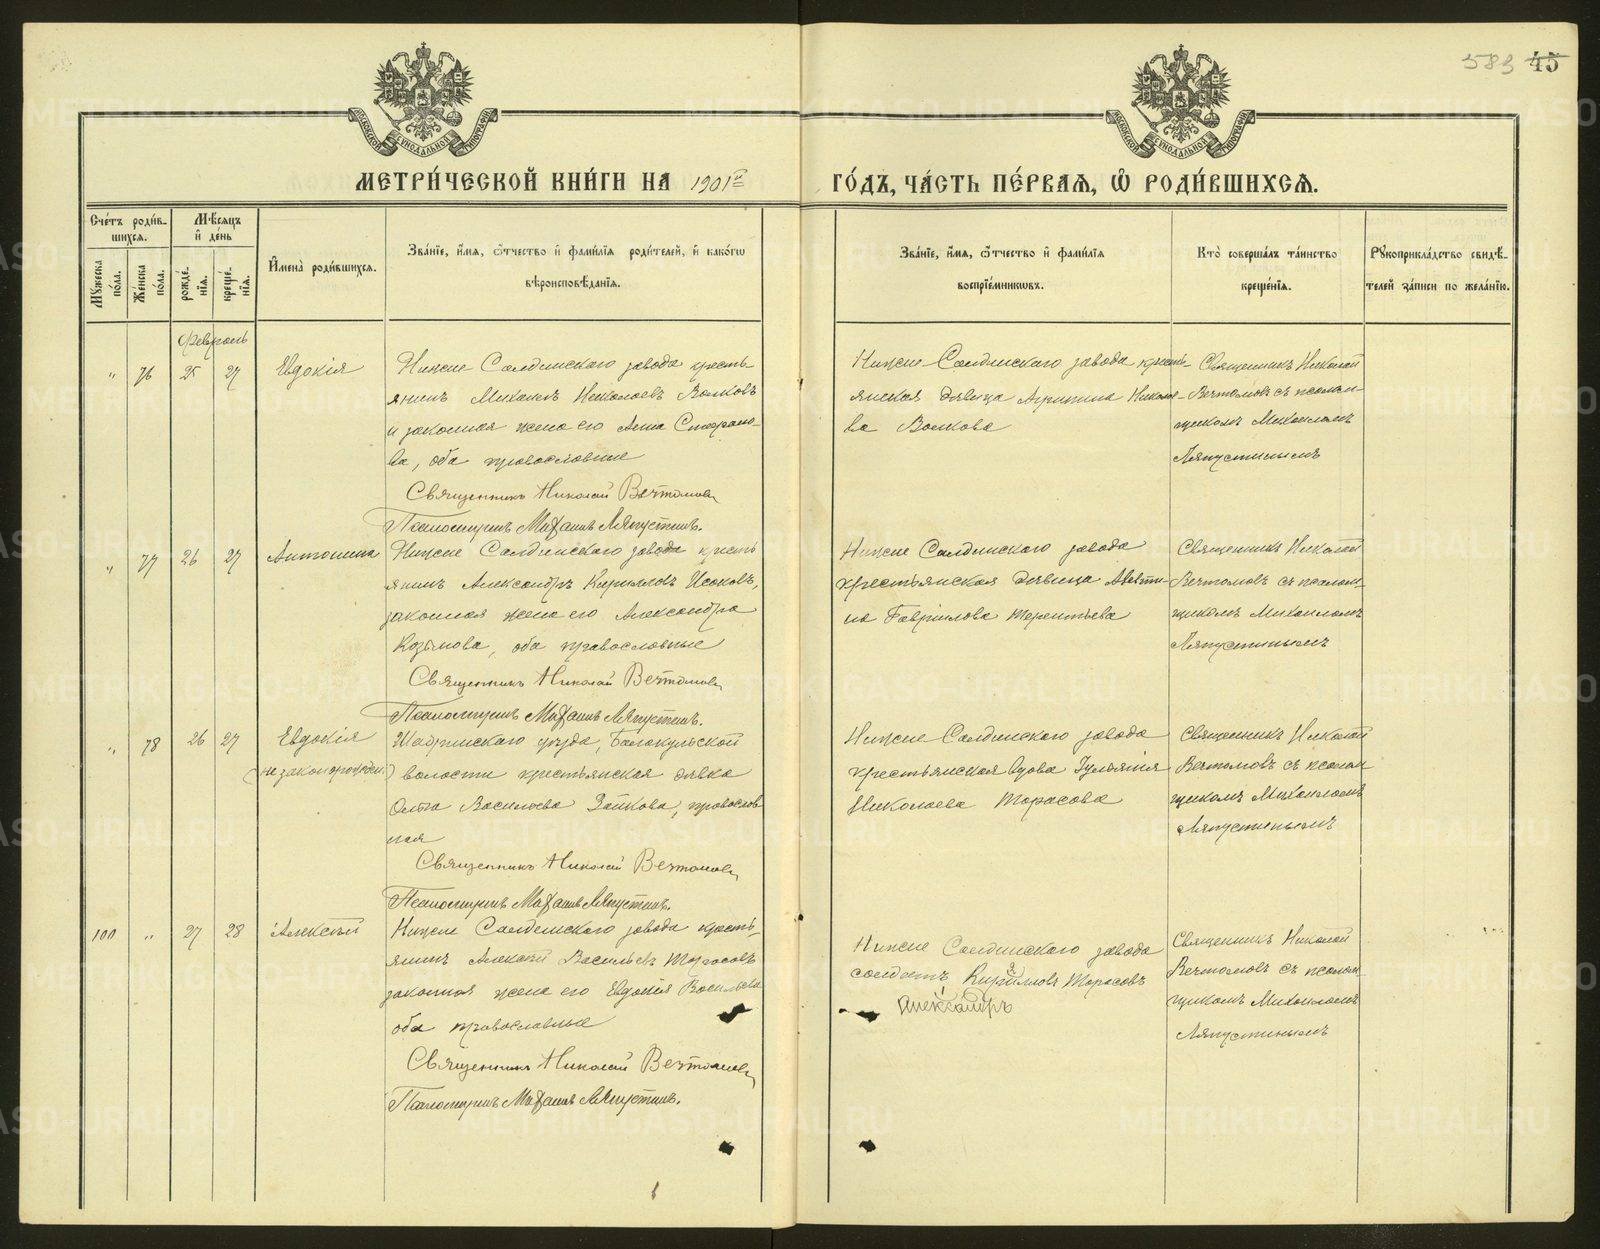 583 45
МЕТРИ́ЧЕСКОЙ КНИ́ГИ НА 1901й
ГО́ДЪ, ЧА́СТЬ ПЕ́РВАЯ, Ѿ РОДИ́ВШИХСЯ.
Сче́тъ роди́в-
шихся.
Мꙋ́жеска по́ла.
Же́нска по́ла.
Мѣ́сяцъ
и҆ де́нь
рожде́-
нїя.
креще́-
нїя.
И҆мена̀ роди́вшихся.
Зва́нїе, и҆́мя, ѻ҆́тчество и҆ фамилїя роди́телей, и҆ како́гѡ
вѣроисповѣ́данїя.
Зва́нїе, и҆́мя, ѻ҆́тчество и҆ фами́лїя
воспрїе́мникѡвъ.
Кто̀ соверша́лъ та́инство
креще́нїя.
Рꙋкоприкла́дство свидѣ́-
телей за́писи по жела́нїю.
Февраль
" 76 25 27 Евдокія
Нижне Салдинскаго завода кресть-
янинъ Михаилъ Николаевъ Волковъ
и законная жена его Анна Стефано-
ва, оба православные
Священникъ Николай Вечтомовъ
Псаломщикъ Михаилъ Ляпустинъ.
Нижне-Салдинскаго завода кресть-
янская девица Агрипина Николае-
ва Волкова
Священникъ Николай
Вечтомовъ съ псалом-
щикомъ Михаиломъ
Ляпустинымъ
" 77 26 27 Антонина
Нижне Салдинскаго завода кресть
янинъ Александръ Кирилловъ Исаковъ,
законная жена его Александра
Козьмова, оба православные
Священникъ Николай Вечтомовъ
Псаломщикъ Михаилъ Ляпустинъ.
Нижне Салдинскаго завода
крестьянская девица
на Гаврилова Терентьева
Священникъ Николай
Вечтомовъ съ псалом-
щикомъ Михаиломъ
Ляпустинымъ
" 78 26 27 Евдокія
(незаконорожден.)
Шадринскаго уезда,
волости крестьянская девка
Ольга Васильева Зайкова, православ
ная
Священникъ Николай Вечтомовъ
Псаломщикъ Михаилъ Ляпустинъ.
Нижне Салдинскаго завода
крестьянская вдова Гульянія
Николаева Тарасова
Священникъ Николай
Вечтомовъ съ псалом
щикомъ Михаиломъ
Ляпустинымъ
100 " 27 28 Алексѣй
Нижне Салдинскаго завода кресть-
янинъ Алексѣй Васильевъ Тарасовъ
законная жена его Евдокія Васильева
оба православные
Священникъ Николай Вечтомовъ
Псаломщикъ Михаилъ Ляпустинъ.
Нижне Салдинскаго завода
солдатъ Кирилловъ Тарасовъ
Александръ
Священникъ Николай
Вечтомовъ съ псалом
щикомъ Михаиломъ
Ляпустинымъ
METRIKI.GASO-URAL.RU